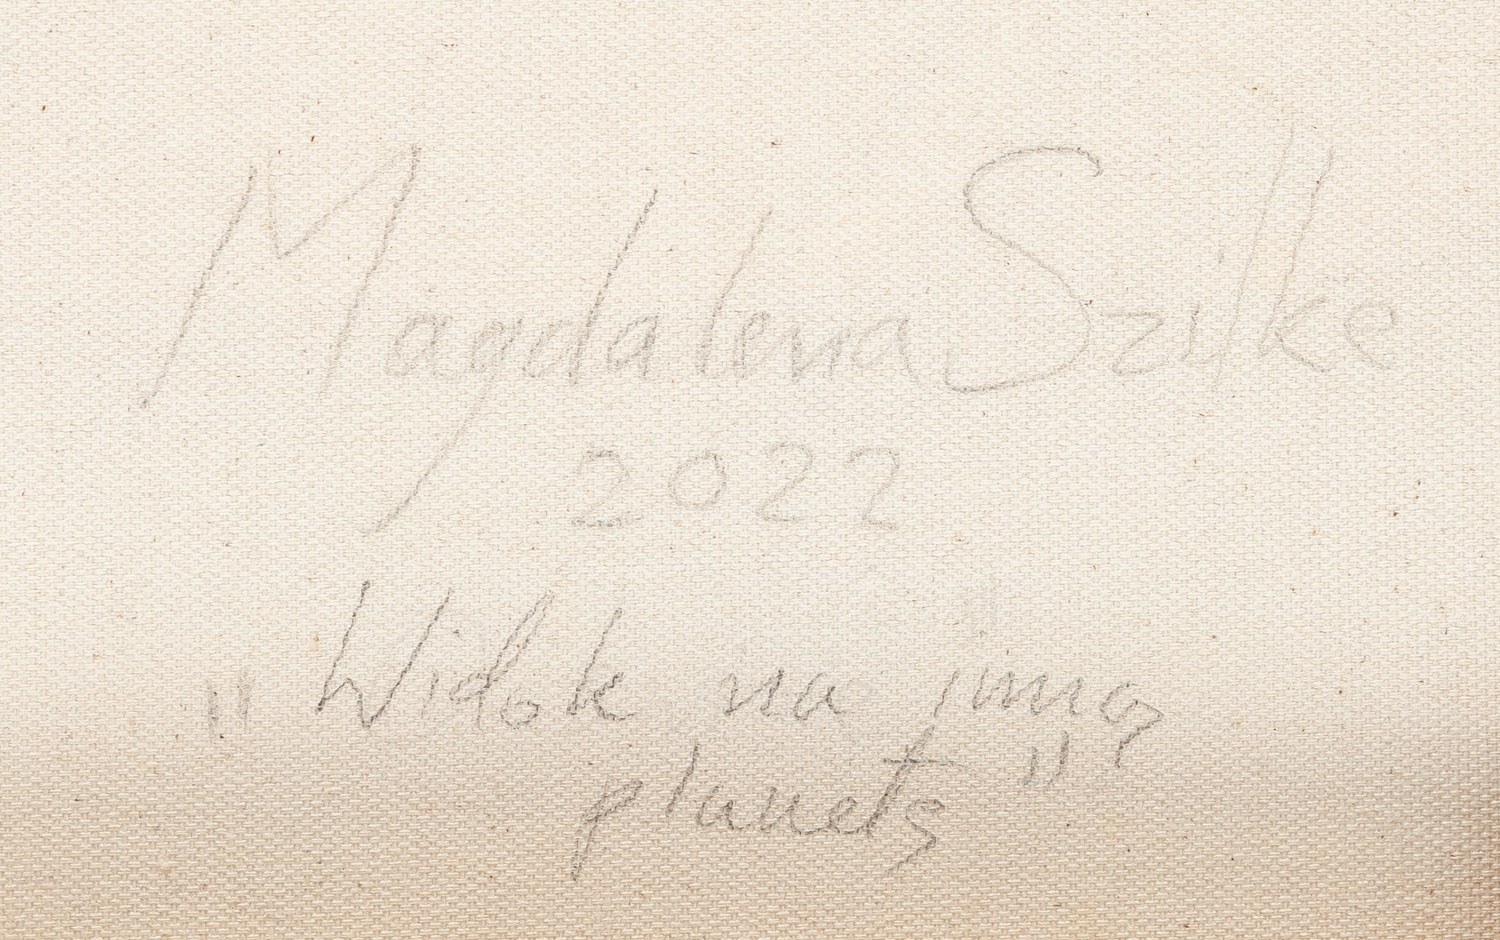 Magdalena Szilke
2022
"Widok na inną
planetę"